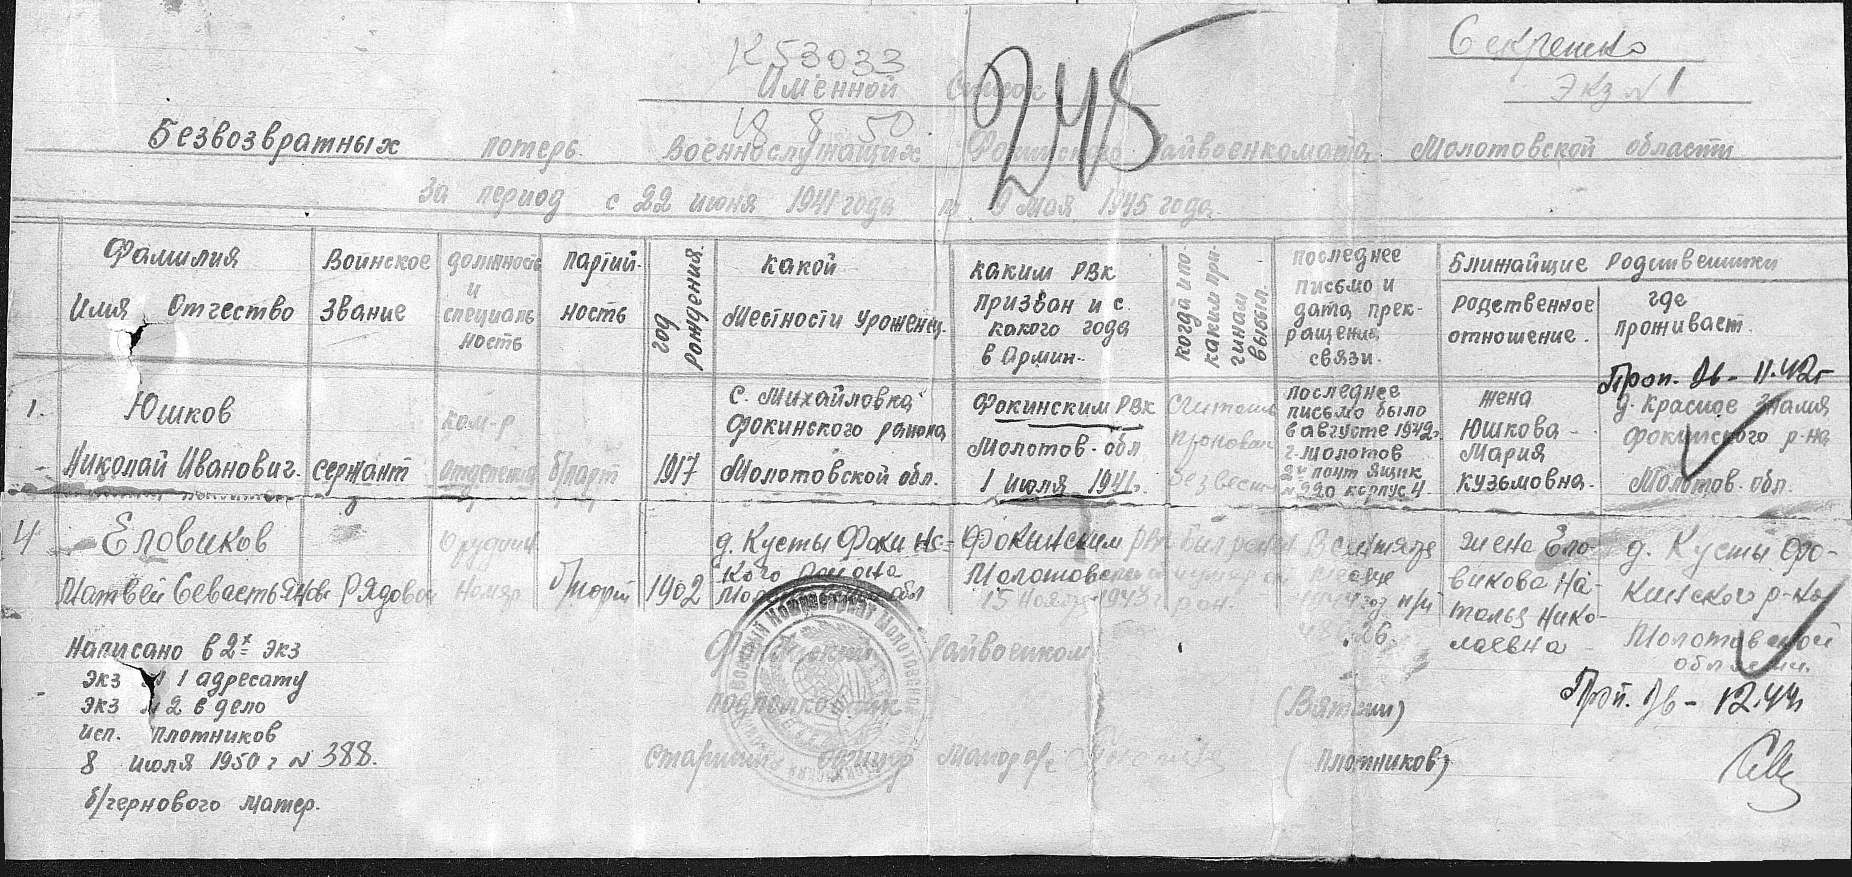 Секретно
Экз № 1
К53033
245
Именной список
18 8 50
Безвозвратных потерь военнослужащих Фокинского Райвоенкомата Молотовской области
За период с 22 июня 1941 года по 9 мая 1945 года.
Фамилия Имя Отчество
Воинское звание
должность и специальность
партийность
год рождения.
какой местности уроженец.
каким РВК призван и с какого года в Армии-
когда и по каким причинам выбыл.
последнее письмо и дата, прекращения связи.
Ближайщие Родственники
Родственное отношение.
где проживает.
Проп. б/в - 11.42г
1.
Юшков
Николай Иванович.
сержант
ком-р
отделения
б/парт
1917
с. Михайловка
Фокинского района
Молотовской обл.
Фокинским РВК
Молотов. обл
1 июля 1941г.
считать
пропавш
безвест
последнее
письмо было
в августе 1942г.
г. Молотов
почт ящик
№ 220 корпус 4.
жена
Юшкова -
Мария
кузьмовна.
д. Красное Знамя
Фокинского р-на
Молотов. обл.
4
Еловиков
Матвей Севастьянов
Рядовой
Орудийн
номер
б/парт
1902
д. Кусты Фокинс-
кого района
Фокинским РВК
Молотовской
15 ноября 1943г
В сентябре
месяце
п/п
48626.
жена Ело-
викова На-
талья Нико-
лаевна
д. Кусты Фо-
кинского р-на
Молотовской
области.
Проп. б/в - 12.44г
Написано в 2х экз
экз № 1 адресату
экз № 2 в дело
исп. плотников
8 июля 1950 г № 388.
б/чернового матер.
Фокинский Райвоенком
подполковник
(Вяткин)
старший офицер
(Плотников)